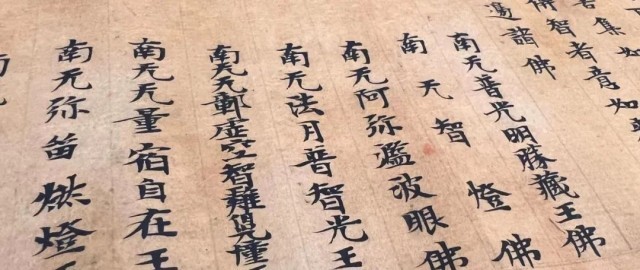 集如
佛智者意如
邊諸佛
南无普光明勝藏王佛
南无智燈佛
南无阿弥濫波眼佛
南无法月普智光王
南无虛空智幢
南无无量宿自在王
南无弥苗燃燈王
南